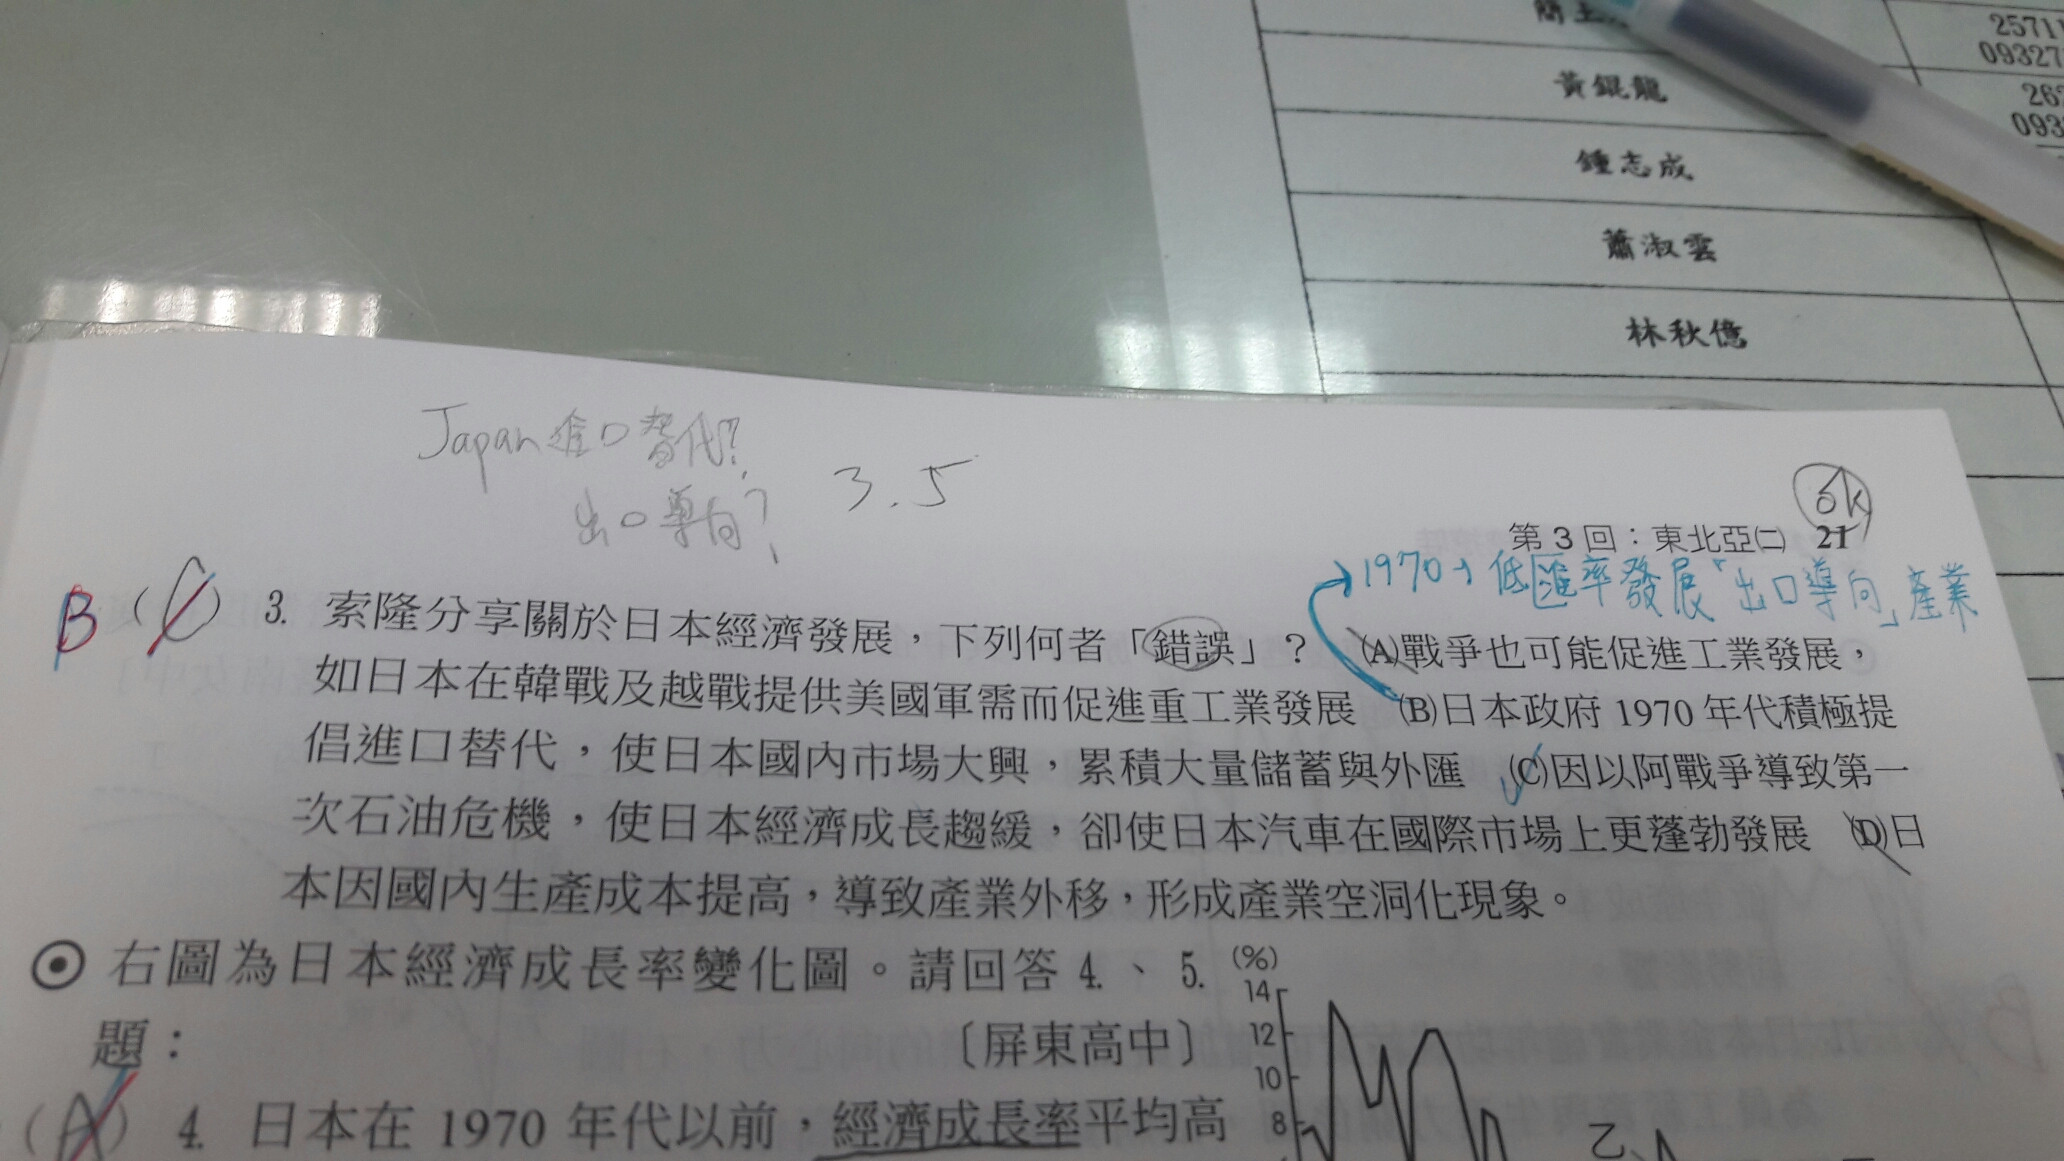 25711
09327
黃錕龍
262
093
鍾志成
蕭淑雲
林秋億
Japan進口替代?
出口導向?
3.5
ok
第3回：東北亞㈡ 21
1970→低匯率發展「出口導向」產業
B (C) 3. 索隆分享關於日本經濟發展，下列何者「錯誤」？ (A)戰爭也可能促進工業發展，
如日本在韓戰及越戰提供美國軍需而促進重工業發展 (B)日本政府1970年代積極提
倡進口替代，使日本國內市場大興，累積大量儲蓄與外匯 (C)因以阿戰爭導致第一
次石油危機，使日本經濟成長趨緩，卻使日本汽車在國際市場上更蓬勃發展 (D)日
本因國內生產成本提高，導致產業外移，形成產業空洞化現象。
⊙右圖為日本經濟成長率變化圖。請回答4.、5.
題：〔屏東高中〕
(%)
14
12
10
8
乙
(A) 4. 日本在1970年代以前，經濟成長率平均高